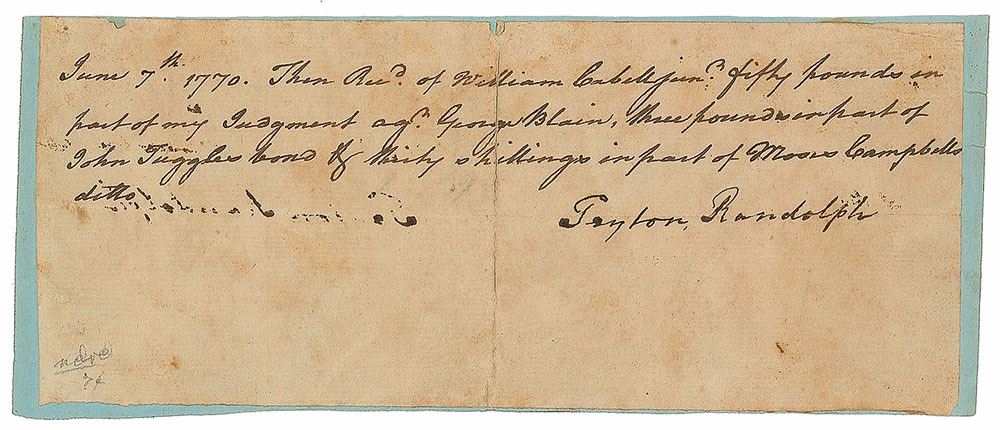 June 7th. 1770. Then Recd. of William Cabell junr. fifty pounds in
part of my Judgment agt. George Blain, three pounds in part of
John Tuggles bond & thirty shillings in part of Moses Campbells
ditto
Peyton Randolph